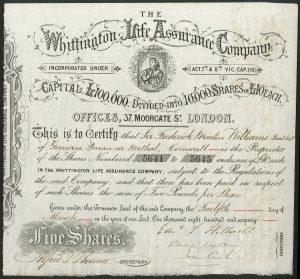 THE
Whittington Life Assurance Company.
INCORPORATED UNDER ACT 7TH & 8TH VIC. CAP. 110.
CAPITAL £100,000. DIVIDED INTO 10,000 SHARES OF £10 EACH.
OFFICES, 37, MOORGATE ST. LONDON.
This is to Certify that Sir Frederick Martin Williams
of Goonvrea Perranar Worthal, Cornwall is the Proprietor
of the Shares Numbered 5641 to 5645 inclusive of £10 each
IN THE WHITTINGTON LIFE ASSURANCE COMPANY, subject to the Regulations
of the said Company; and that there has been paid in respect
of such Shares the sum of Two Pounds per Share.
Given under the Common Seal of the said Company the Twelfth day of
March in the year of our Lord One thousand eight hundred and seventy
Five Shares.
Alfred T. Bowser SECRETARY.
DIRECTORS